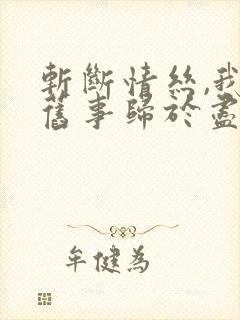 斬斷情絲,我
舊事歸於盡
牟健為